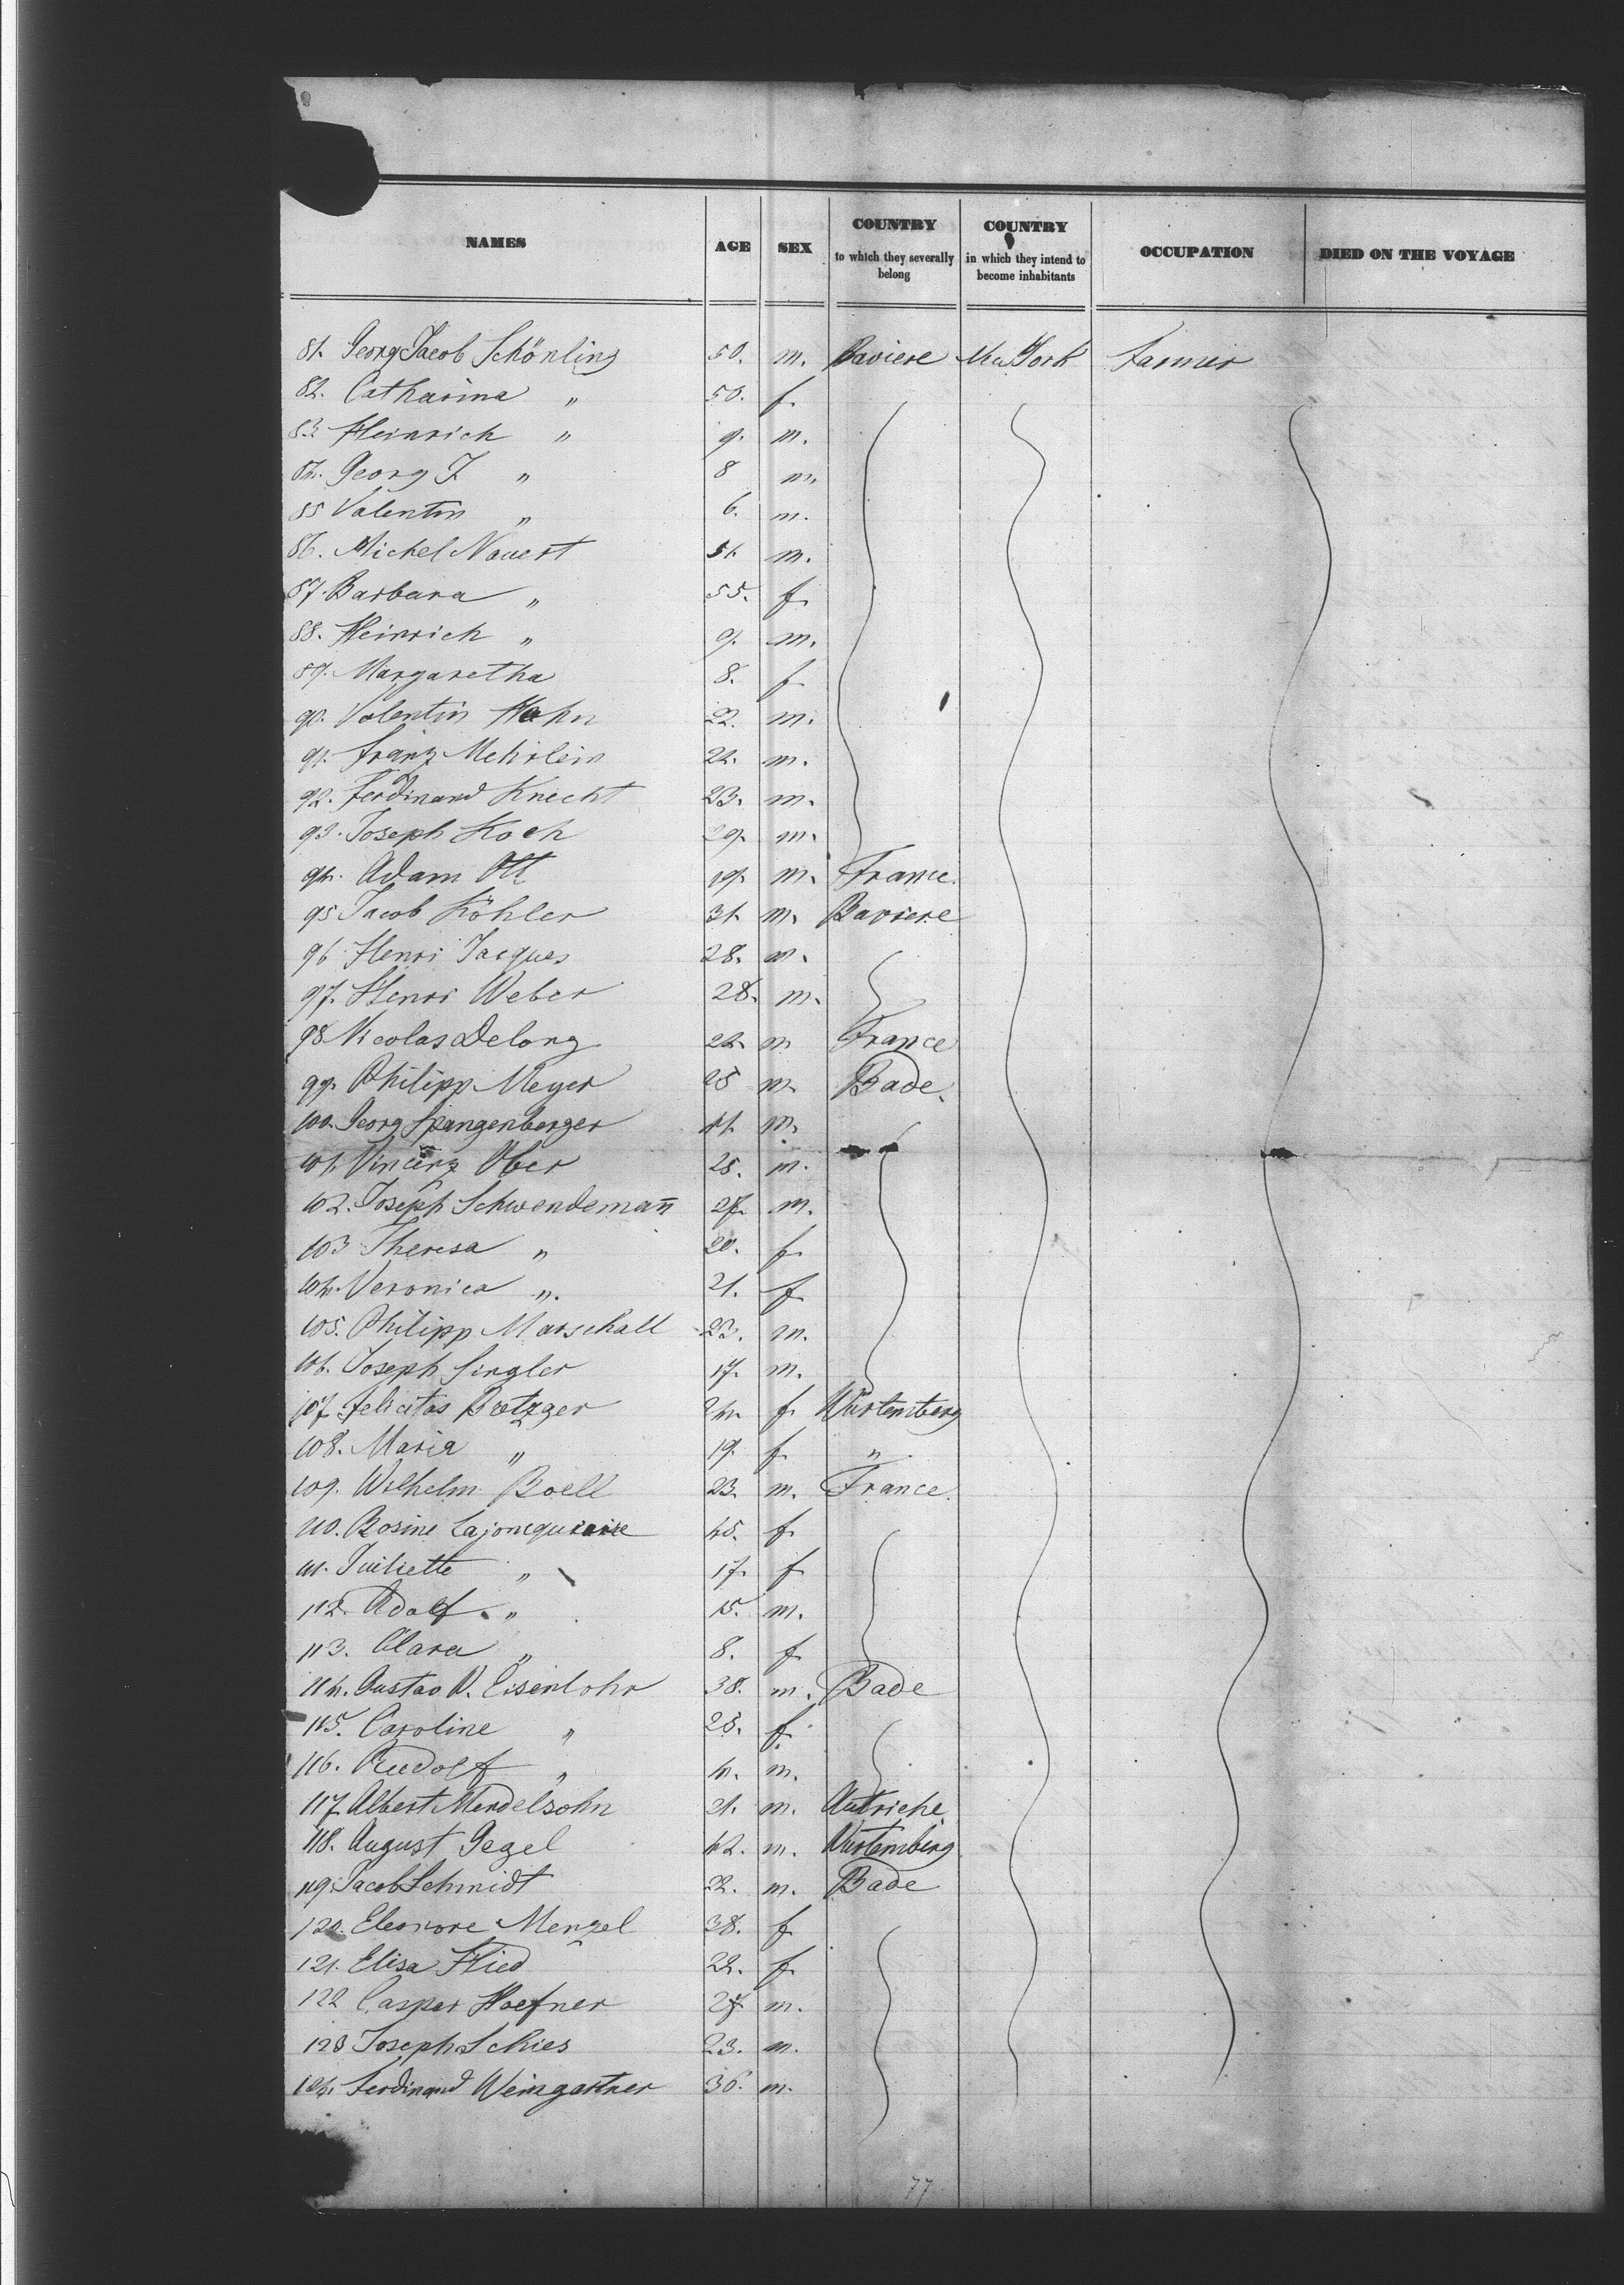 NAMES AGE SEX COUNTRY to which they severally belong COUNTRY in which they intend to become inhabitants OCCUPATION DIED ON THE VOYAGE
81. Georg Jacob Schönling 50. m. Baviere New York Farmer
82. Catharina " 50. f.
83. Heinrich " 9. m.
84. Georg J. " 8 m.
85 Valentin " 6. m.
86. Michel Nauert 51. m.
87. Barbara " 55. f.
88. Heinrich " 9. m.
89. Margaretha 8. f.
90. Valentin Hahn 22. m.
91. Franz Mehrlein m.
92. Ferdinand Knecht 23. m.
93. Joseph Koch 29. m.
94. Adam Ott 19. m. France.
95 Jacob Köhler 31. m. Baviere
96 Henri Jacques 28. m.
97. Henri Weber 28. m.
98 Nicolas Delong m France
99. Philipp Meyer 25 m. Bade.
100. Georg Spangenberger m.
101. Vincenz Ober 25. m.
102. Joseph Schwendemann 27. m.
103 Theresa " 20. f.
104. Veronica ". 21. f.
105. Philipp Marschall 23. m.
106. Joseph Singler 17. m.
107. Felicitas Bretzger 24. f. Würtemberg
108. Maria " 19. f. "
109. Wilhelm Boell 23. m. France.
110. Rosine 45. f.
111. Juliette " 17. f
112. Adolf. " 15. m.
113. Clara " 8. f.
114. Gustav W. Eisenlohr 38. m. Bade
115. Caroline " 28. f.
116. Rudolf " 4. m.
117 Albert Mendelsohn 21. m. Autriche.
118. August Gegel 42. m. Würtemberg
119. Jacob Schmidt 22. m. Bade
120. Eleonore Menzel 38. f.
121. Elisa Hied 22. f.
122 Caspar Haefner 27 m.
123 Joseph Schies 23. m.
124. Ferdinand Weingartner 36. m.
77